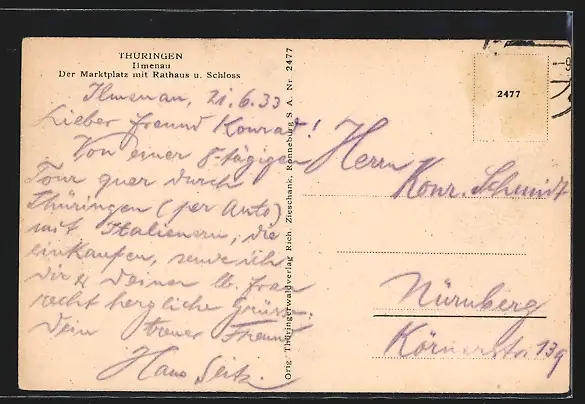 THÜRINGEN
Ilmenau
Der Marktplatz mit Rathaus u. Schloss
Ilmenau, 21.6.33
Lieber Freund Konrad!
Von einer 8-tägigen
Tour quer durch
Thüringen (per Auto)
mit Italienern, die
einkaufen, sende ich
dir u. deiner lb. Frau
recht herzliche Grüsse.
Dein treuer Freund
Hans Seitz.
Orig. Thüringerwaldverlag Rich. Zieschank, Ronneburg S A. Nr. 2477
2477
Herrn
Konr. Schmidt
Nürnberg
Körnerstr. 139